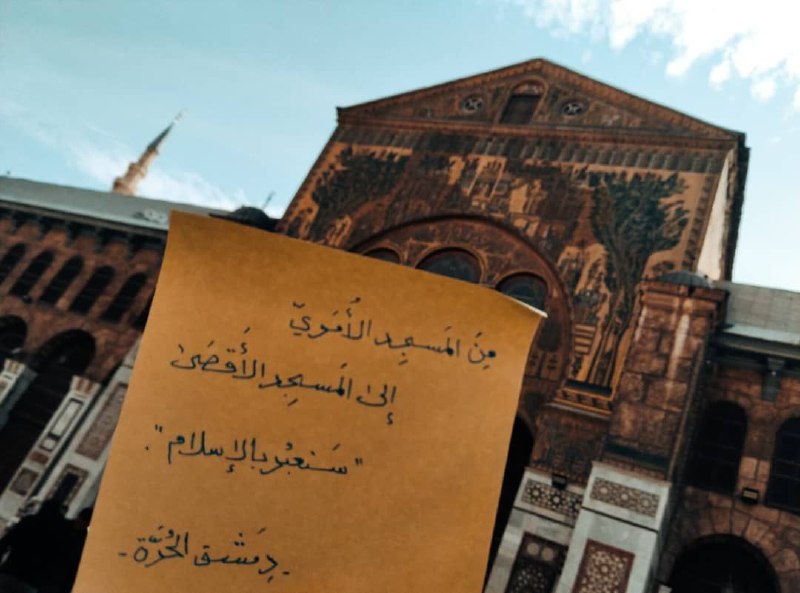 مِنَ المَسجِد الأُمَويّ
إلىٰ المَسجِد الأَقصَىٰ
"سَنعبُر بالإسلام".
- دِمَشق الحُرَّة -